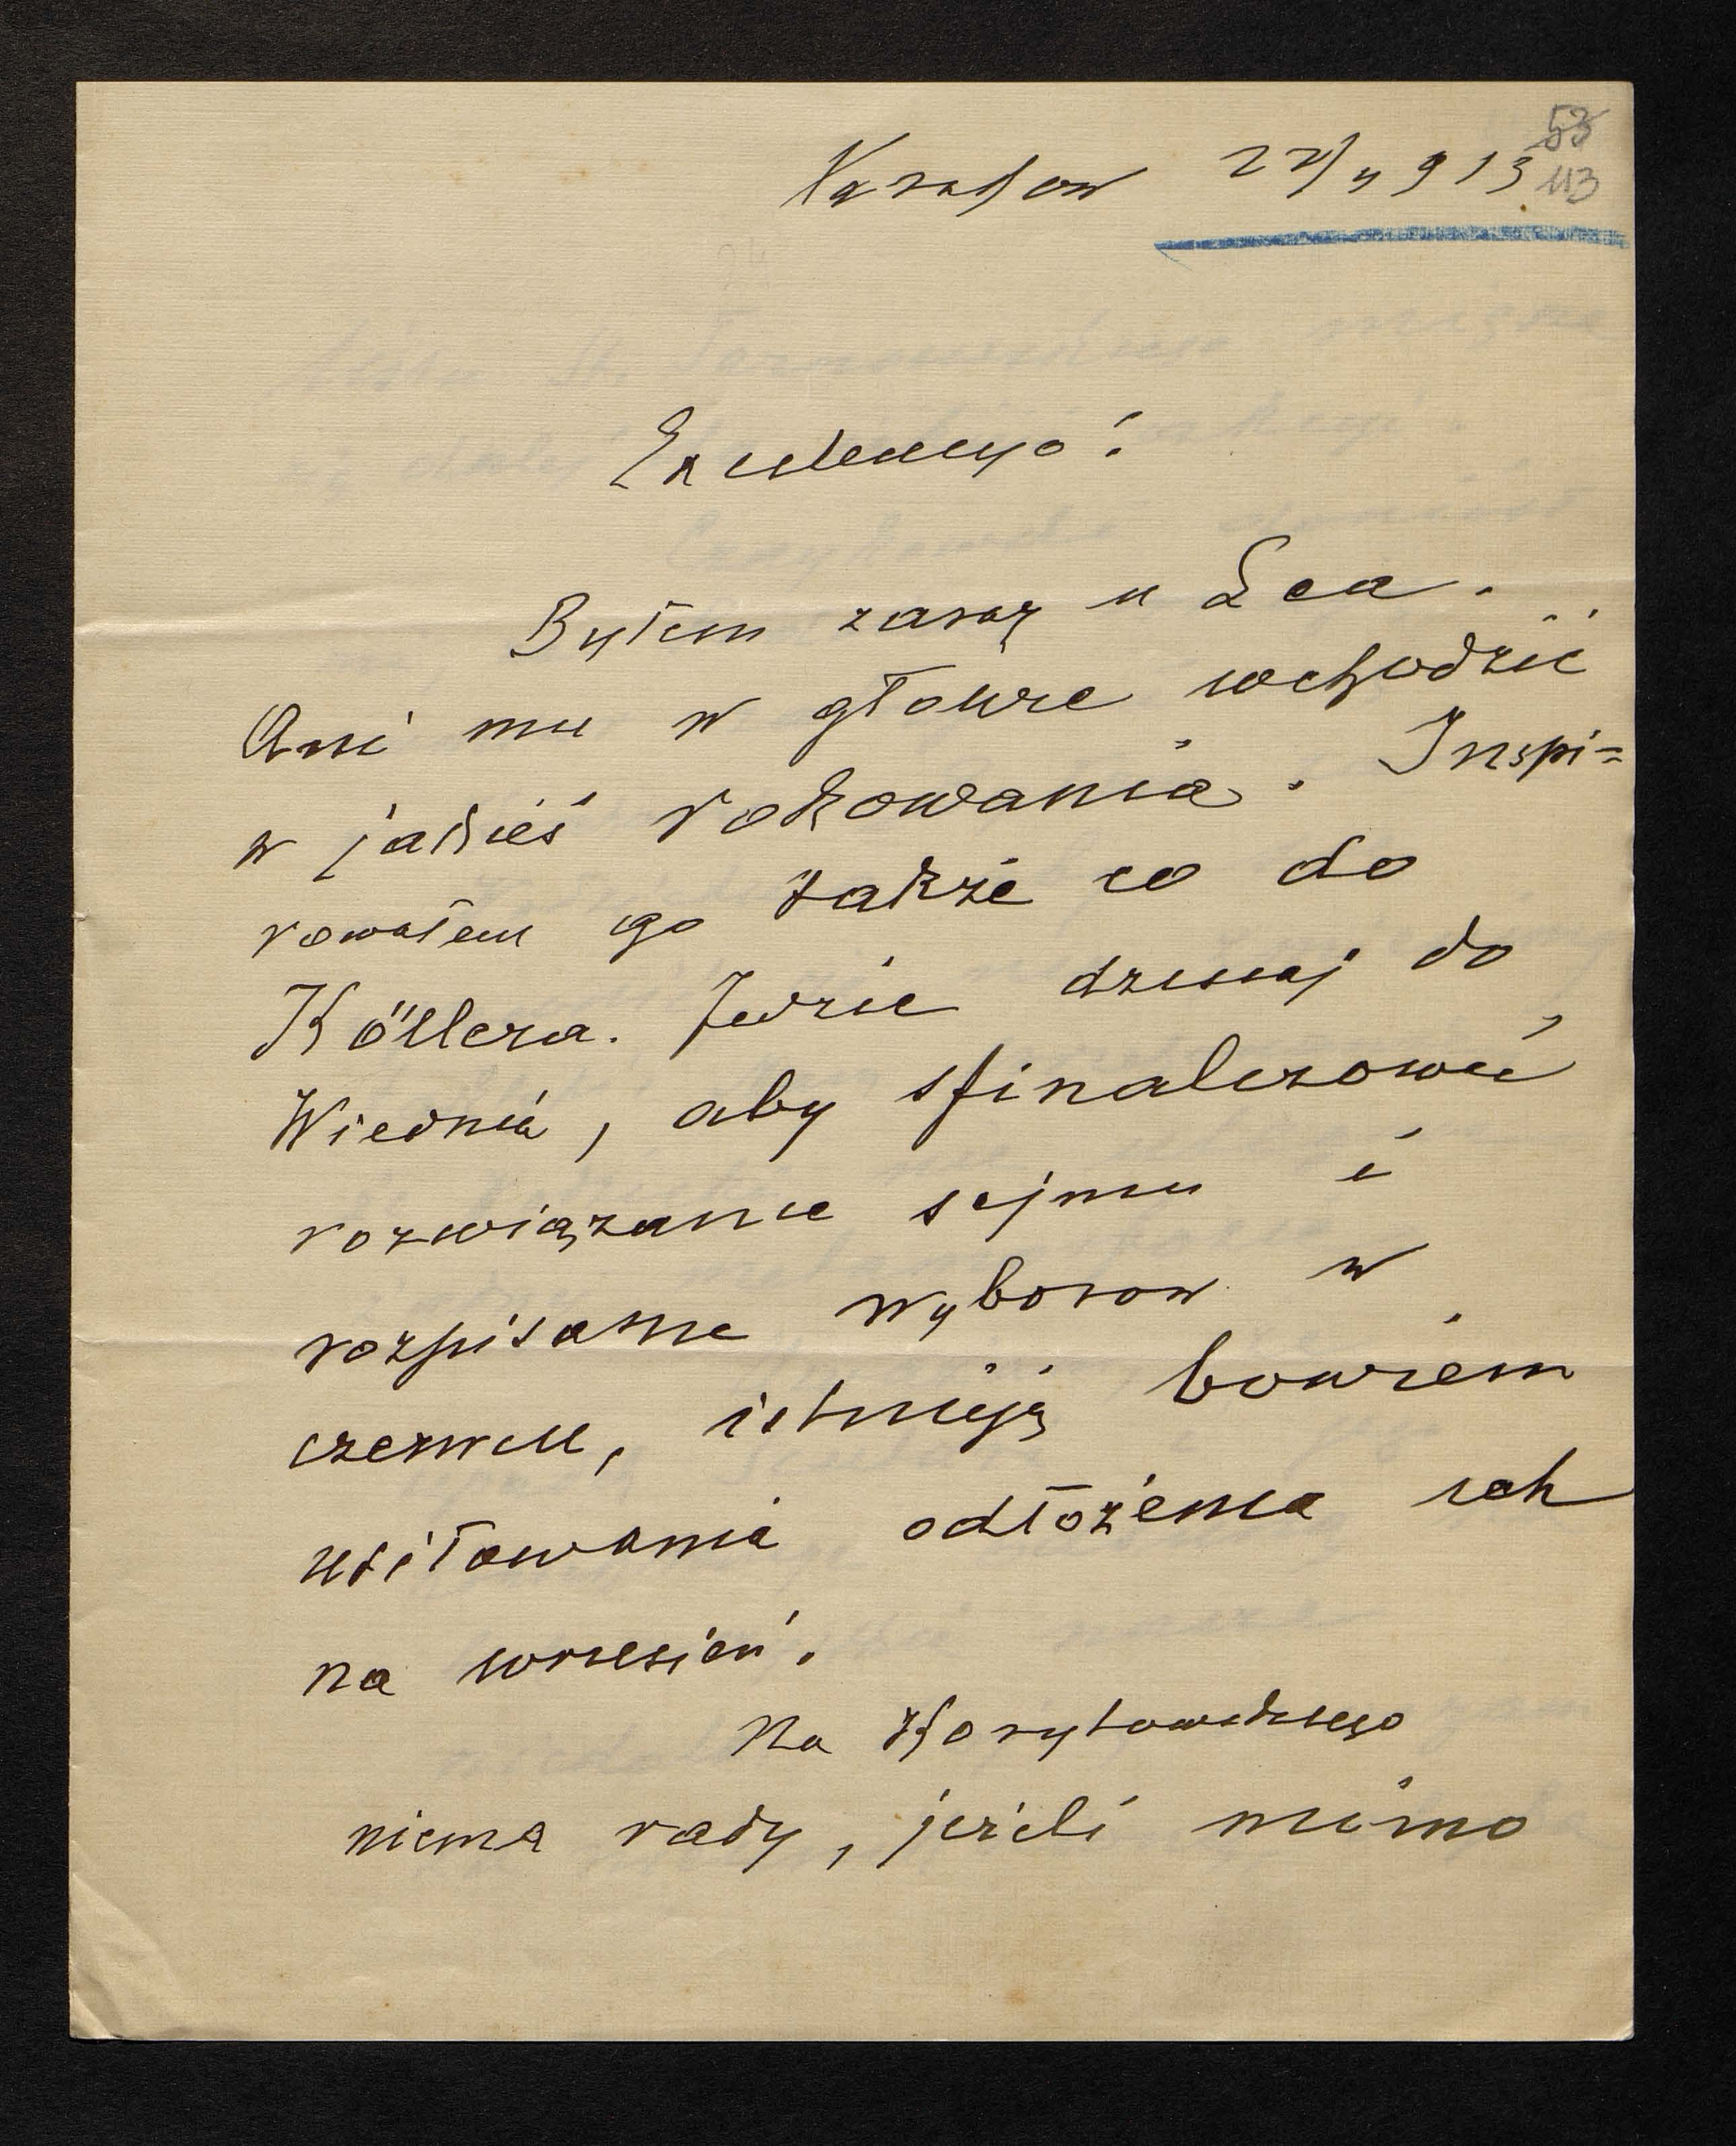 53
113
Kraków 22/4 913
Excelencyo!
Byłem zaraz u Lea.
Ani mu w głowie wchodzić
w jakieś rokowania. Inspi=
rowałem go także co do
Köllera. Jedzie dzisiaj do
Wiednia, aby sfinalizować
rozwiązanie sejmu i
rozpisanie wyborow w
czerwcu, istnieją bowiem
usiłowania odłożenia ich
na wrzesień.
Na Korytowskiego
niema rady, jeżeli mimo